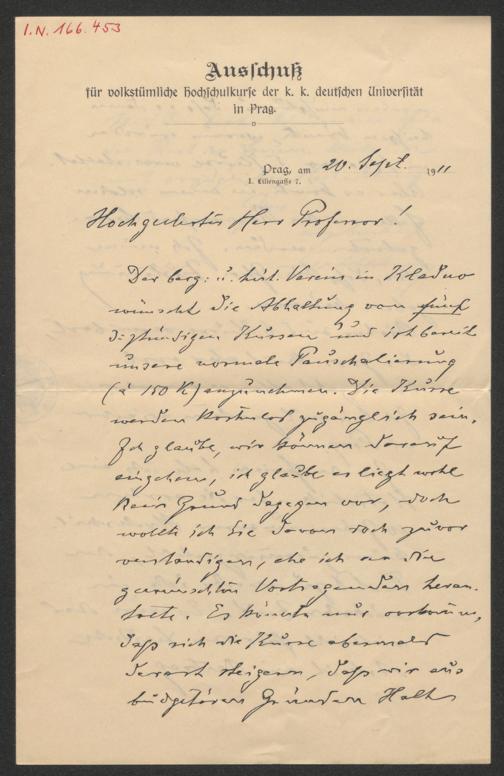 I.N. 166.453
Ausschuß
für volkstümliche Hochschulkurse der k. k. deutschen Universität
in Prag.
Prag, am 20. Sept. 1911
I. Liliengasse 7.
Hochgeehrter Herr Professor!
Der berg- u. hütt. Verein in Kladno
wünscht die Abhaltung von fünf
stündigen Kursen und ist bereit
unsere normale Pauschalierung
(à 150 K) anzunehmen. Die Kurse
werden kostenlos zugänglich sein.
Ich glaube, wir können darauf
eingehen, ich glaube es liegt wohl
kein Grund dagegen vor, doch
wollte ich Sie davon doch zuvor
verständigen, ehe ich an die
gewünschten Vortragenden heran-
trete. Es könnte nur vorkommen,
daß sich die Kurse abermals
derart steigern, daß wir aus
budgetären Gründen Halt